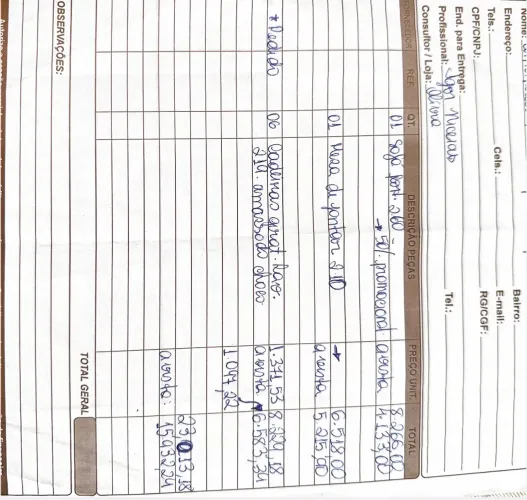 Nome:
Endereço:
Bairro:
Tels.:
Cels.:
E-mail:
CPF/CNPJ:
RG/CGF:
End. para Entrega:
Profissional: Igor Miceias
Tel.:
Consultor / Loja: Olivia
FORNECEDOR REF. QT. DESCRIÇÃO PEÇAS PREÇO UNIT. TOTAL
01 Sofá 260 - 8.266,00
→ 50% promocional a vista 4.133,00
01 Mesa de jantar 210 → 6.518,00
a vista 5.215,00
* Pedido 06 Cadeiras girat. 1.371,53 8.229,18
219. amassado choco a vista 6.583,34
1.047,22
23,013,18
a vista: 15.932,34
TOTAL GERAL
OBSERVAÇÕES: